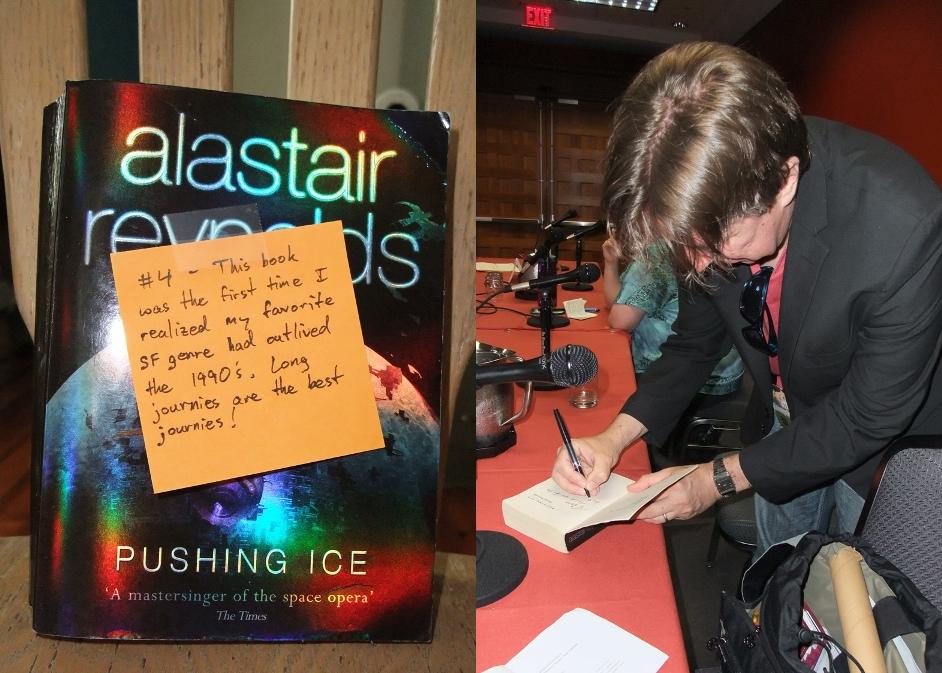 alastair
reynolds
#4 - This book
was the first time I
realized my favorite
SF genre had outlived
the 1990s. Long
journies are the best
journies!
PUSHING ICE
'A mastersinger of the space opera'
The Times
EXIT